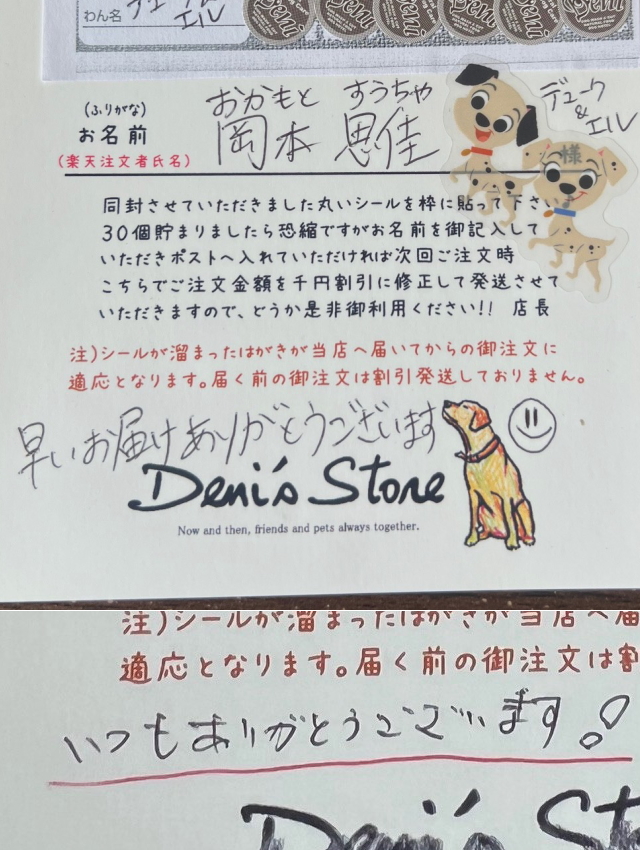 わん名 デューク エル
Deni Deni Deni Deni Deni Deni
(ふりがな) おかもと
お名前 岡本 思佳 様
(楽天注文者氏名)
デューク
&
エル
同封させていただきました丸いシールを枠に貼って下さい。
30個貯まりましたら恐縮ですがお名前を御記入して
いただきポストへ入れていただければ次回ご注文時
こちらでご注文金額を千円割引に修正して発送させて
いただきますので、どうか是非御利用ください!! 店長
注)シールが溜まったはがきが当店へ届いてからの御注文に
適応となります。届く前の御注文は割引発送しておりません。
早いお届けありがとうございます
Deni's Store
Now and then, friends and pets always together.
注)シールが溜まったはがきが当店へ届
適応となります。届く前の御注文は割
いつもありがとうございます!
Deni's St